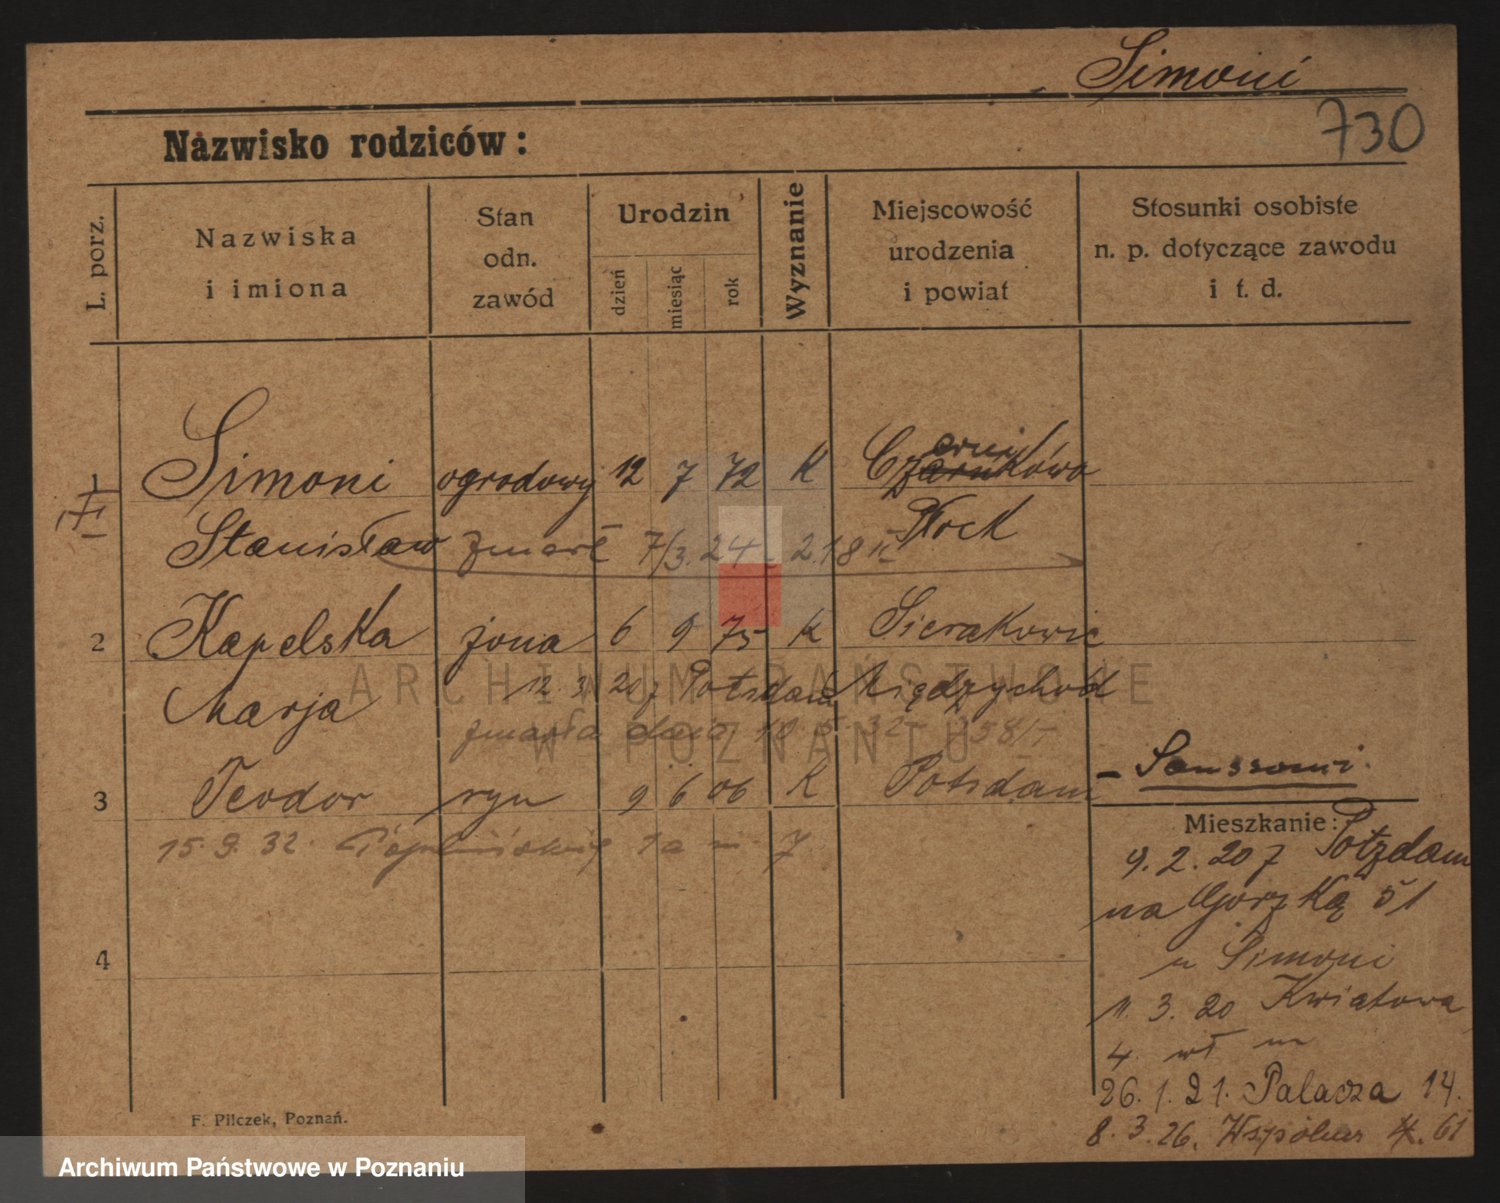 Simoni
730
Nazwisko rodziców:
L. porz.
Nazwiska i imiona
Stan odn. zawód
Urodzin
dzień
miesiąc
rok
Wyznanie
Miejscowość urodzenia i powiat
Stosunki osobiste n. p. dotyczące zawodu i t. d.
1 Simoni ogrodowy 12 7 72 K
Stanisław zmarł 7/3. 24 Płock
2 Kapelska żona 6 9 75 K Sierakowic
Marja 12. 3. 20 z Potsdam Międzychód
zmarła dnia 10. 5. 32
3 Teodor syn 9 6 06 K Potsdam
15. 9. 32. 1a m 7
4
Mieszkanie:
9. 2. 20 z Potzdam
na Górzką 51
u Simoni
11. 3. 20 Kwiatowa
4 wł m
26. 1. 21. Palacza 14.
8. 3. 26. Wspólna 61
F. Pilczek, Poznań.
ARCHIWUM PAŃSTWOWE
W POZNANIU
Archiwum Państwowe w Poznaniu